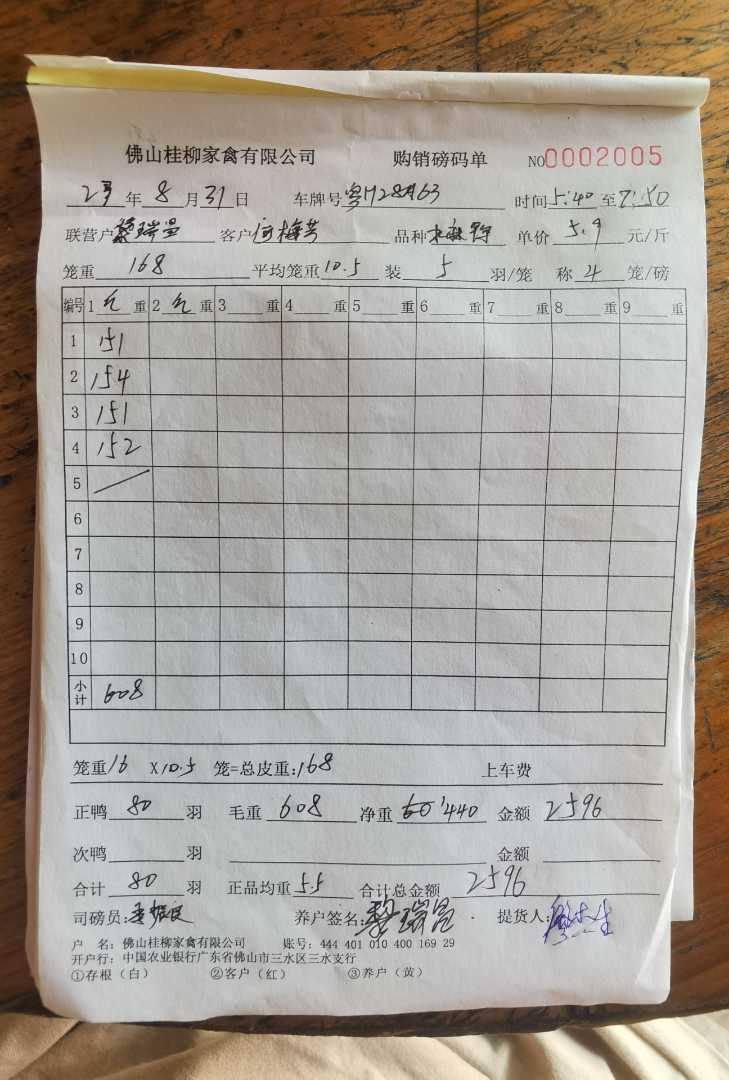 佛山桂柳家禽有限公司 购销磅码单 NO0002005
23年8月31日 车牌号粤H28 63 时间5:40至7:50
联营户黎瑞昌 客户何梅芳 品种 单价5.9元/斤
笼重168 平均笼重10.5装5羽/笼 称4笼/磅
编号 1毛重 2毛重 3重 4重 5重 6重 7重 8重 9重
1 151
2 154
3 151
4 152
5
6
7
8
9
10
小计 608
笼重16 X10.5 笼=总皮重:168 上车费
正鸭80羽 毛重608 净重440 金额2596
次鸭羽 金额
合计80羽 正品均重5.5 合计总金额2596
司磅员: 养户签名:黎瑞昌 提货人:
户 名:佛山桂柳家禽有限公司 账号:444 401 010 400 169 29
开户行:中国农业银行广东省佛山市三水区三水支行
①存根(白) ②客户(红) ③养户(黄)